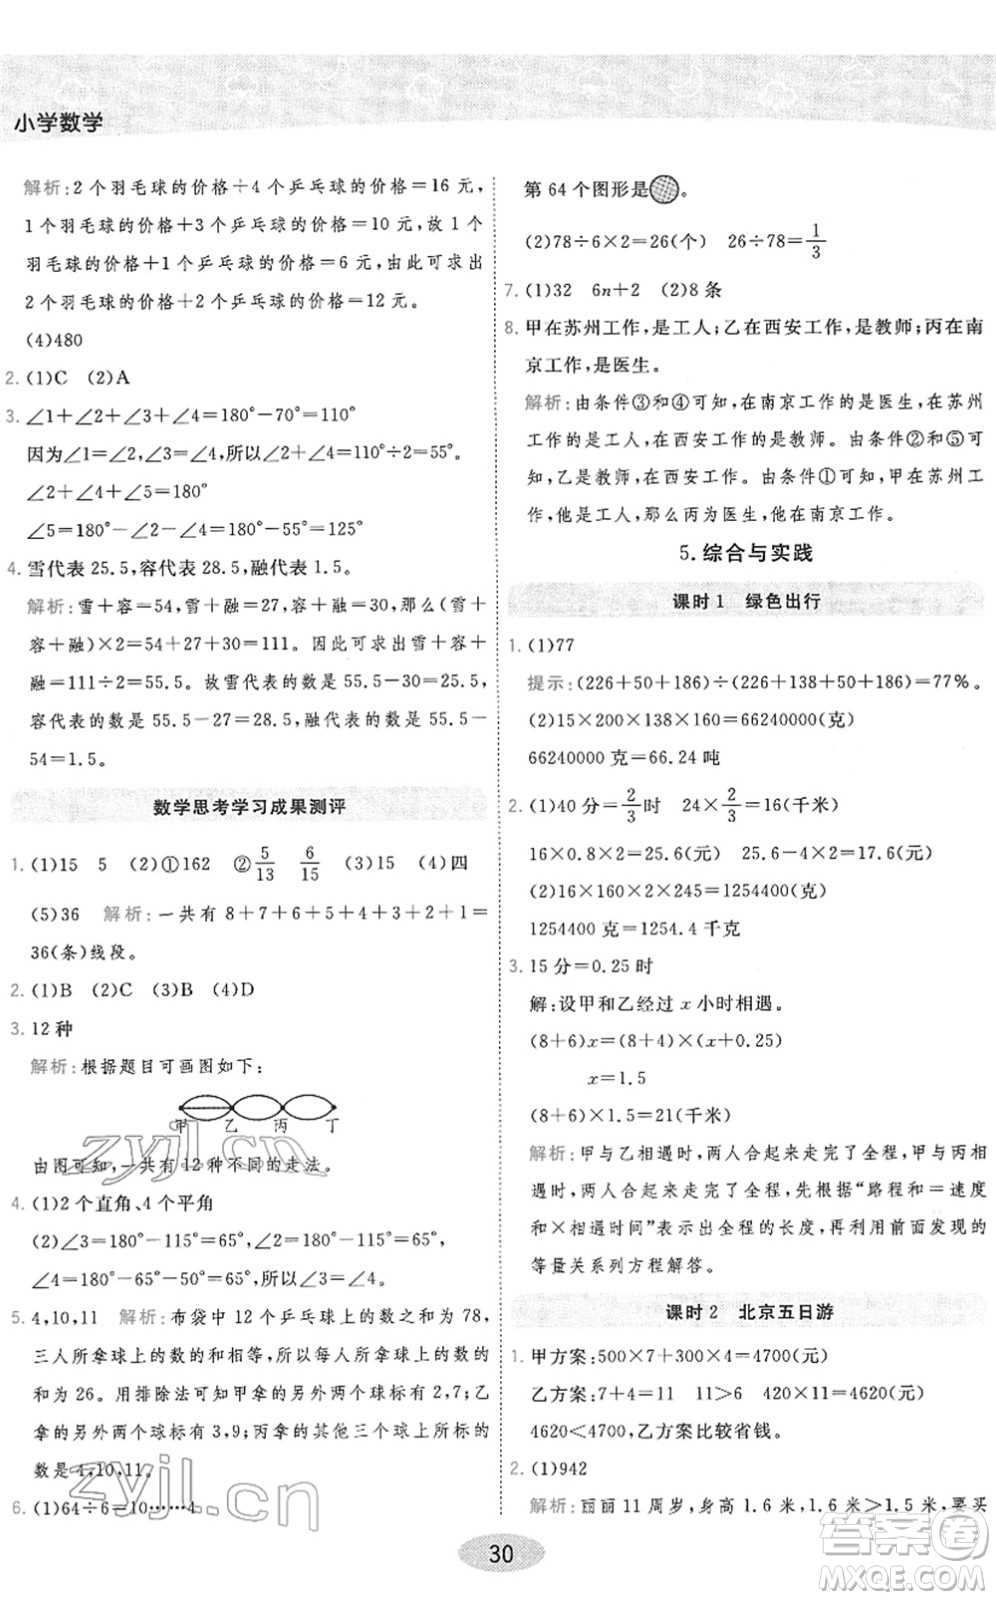 小学数学
解析:2 个羽毛球的价格+4 个乒乓球的价格=16 元,
1 个羽毛球的价格+3 个乒乓球的价格=10 元,故 1 个
羽毛球的价格+1 个乒乓球的价格=6 元,由此可求出
2 个羽毛球的价格+2 个乒乓球的价格=12 元。
(4)480
2. (1)C (2)A
3. ∠1+∠2+∠3+∠4=180°-70°=110°
因为∠1=∠2,∠3=∠4,所以∠2+∠4=110°÷2=55°。
∠2+∠4+∠5=180°
∠5=180°-∠2-∠4=180°-55°=125°
4. 雪代表 25.5,容代表 28.5,融代表 1.5。
解析:雪+容=54,雪+融=27,容+融=30,那么(雪+
容+融)×2=54+27+30=111。因此可求出雪+容+
融=111÷2=55.5。故雪代表的数是 55.5-30=25.5,
容代表的数是 55.5-27=28.5,融代表的数是 55.5-
54=1.5。
数学思考学习成果测评
1. (1)15 5 (2)①162 ②5/13 6/15 (3)25 (4)四
(5)36 解析:一共有 8+7+6+5+4+3+2+1=
36(条)线段。
2. (1)B (2)C (3)B (4)D
3. 12 种
解析:根据题目可画图如下:
甲 乙 丙 丁
由图可知,一共有 12 种不同的走法。
4. (1)2 个直角、4 个平角
(2)∠3=180°-115°=65°,∠2=180°-115°=65°,
∠4=180°-65°-50°=65°,所以∠3=∠4。
5. 4,10,11 解析:布袋中 12 个乒乓球上的数之和为 78,
三人所拿球上的数的和相等,所以每人所拿球上的数的
和为 26。用排除法可知甲拿的另外两个球标有 2,7;乙
拿的另外两个球标有 3,9;丙拿的另外三个球上标有的
数是 4,10,11。
6. (1)64÷6=10……4
第 64 个图形是 。
(2)78÷6×2=26(个) 26÷78=1/3
7. (1)32 6n+2 (2)8 条
8. 甲在苏州工作,是工人;乙在西安工作,是教师;丙在南
京工作,是医生。
解析:由条件③和④可知,在南京工作的是医生,在苏州
工作的是工人,在西安工作的是教师。由条件②和⑤可
知,乙是教师,在西安工作。由条件①可知,甲在苏州工
作,他是工人,那么丙为医生,他在南京工作。
5. 综合与实践
课时 1 绿色出行
1. (1)77
提示:(226+50+186)÷(226+138+50+186)=77%。
(2)15×200×138×160=66240000(克)
66240000 克=66.24 吨
2. (1)40 分=2/3时 24×2/3=16(千米)
16×0.8×2=25.6(元) 25.6-4×2=17.6(元)
(2)16×160×2×245=1254400(克)
1254400 克=1254.4 千克
3. 15 分=0.25 时
解:设甲和乙经过 x 小时相遇。
(8+6)x=(8+4)×(x+0.25)
x=1.5
(8+6)×1.5=21(千米)
解析:甲与乙相遇时,两人合起来走完了全程,甲与丙相
遇时,两人合起来走完了全程,可以根据“路程和=速度
和×相遇时间”表示出全程的长度,再利用前面发现的
等量关系列方程解答。
课时 2 北京五日游
1. 甲方案:500×7+300×4=4700(元)
乙方案:7+4=11 11>6 420×11=4620(元)
4620<4700,乙方案比较省钱。
2. (1)942
解析:丽丽 11 周岁,身高 1.6 米,1.6米>1.5 米,要买
30
zyjl.cn
zyjl.cn
答案圈
MXQE.COM